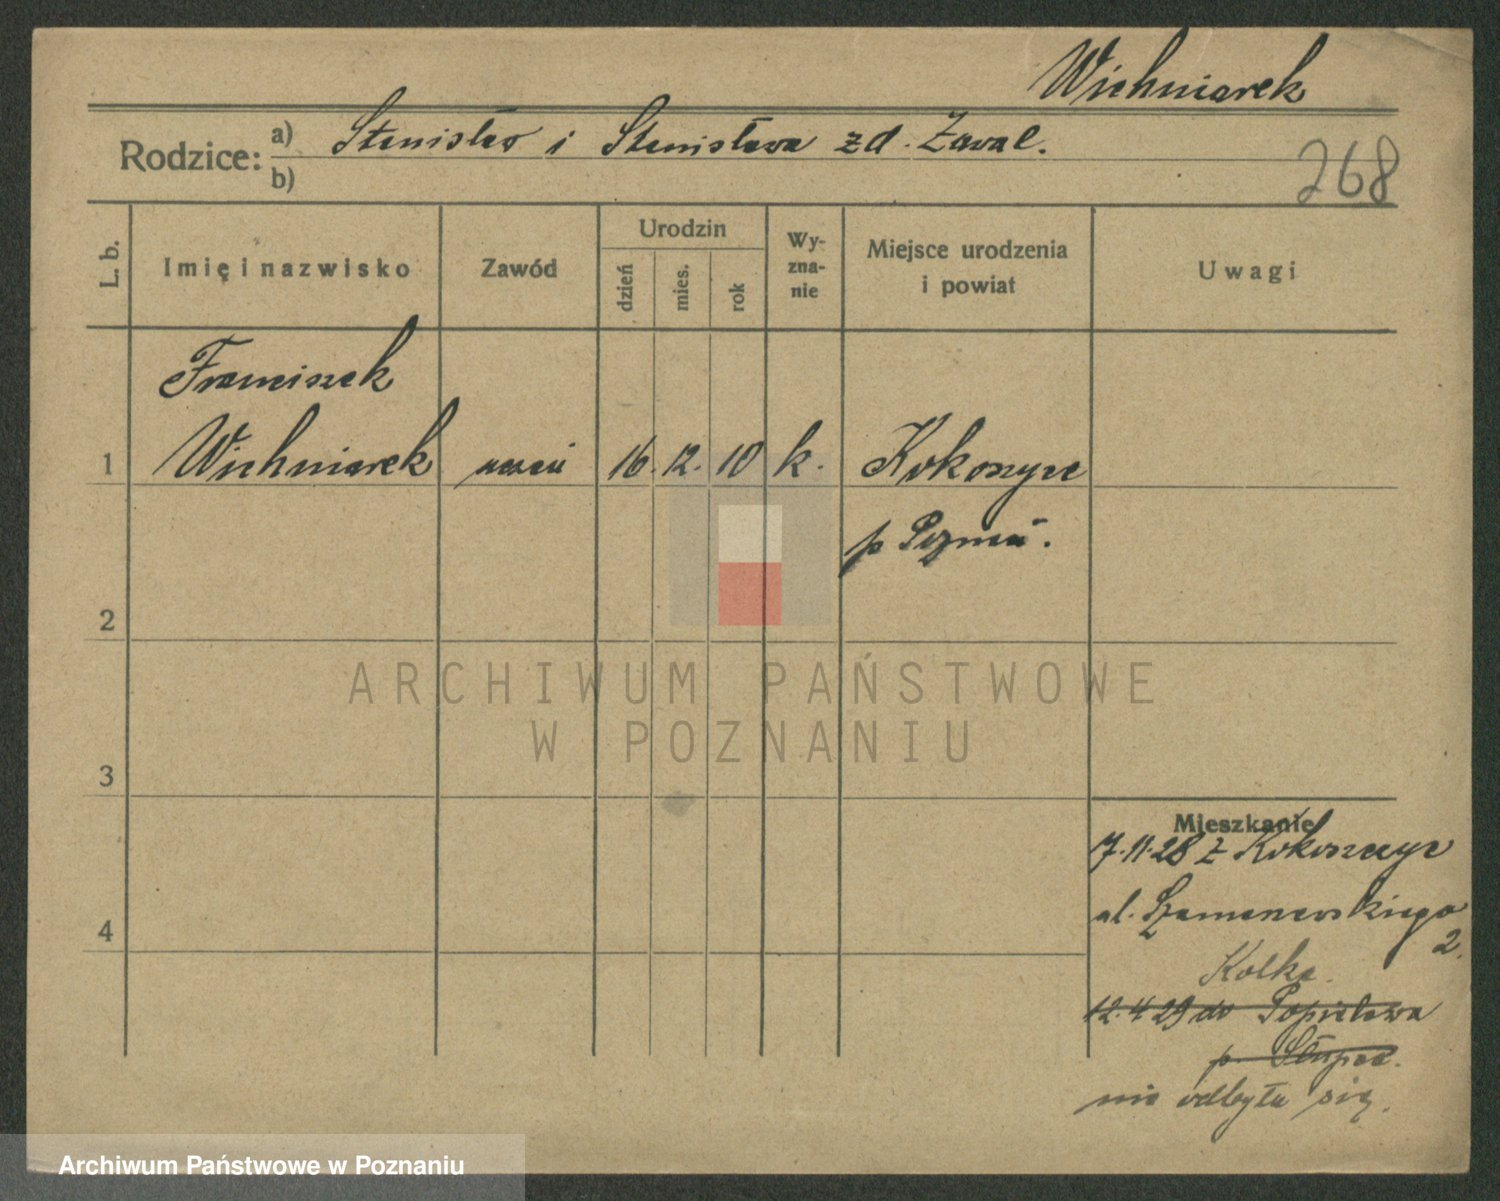 Wichniarek
Rodzice: a) Stanisław i Stanisława zd. Zawal.
b)
268
L. b.
Imię i nazwisko
Zawód
Urodzin
dzień
mies.
rok
Wy-
zna-
nie
Miejsce urodzenia
i powiat
Uwagi
Franciszek
1 Wichniarek uczeń 16. 12. 10 k. Kokoszyce
p Poznań.
2
ARCHIWUM PAŃSTWOWE
W POZNANIU
3
Mieszkanie
7.11.28 z
4 ul. 2.
Kolka.
12.4 29 do
p. Słupca.
nie odbyła się.
Archiwum Państwowe w Poznaniu